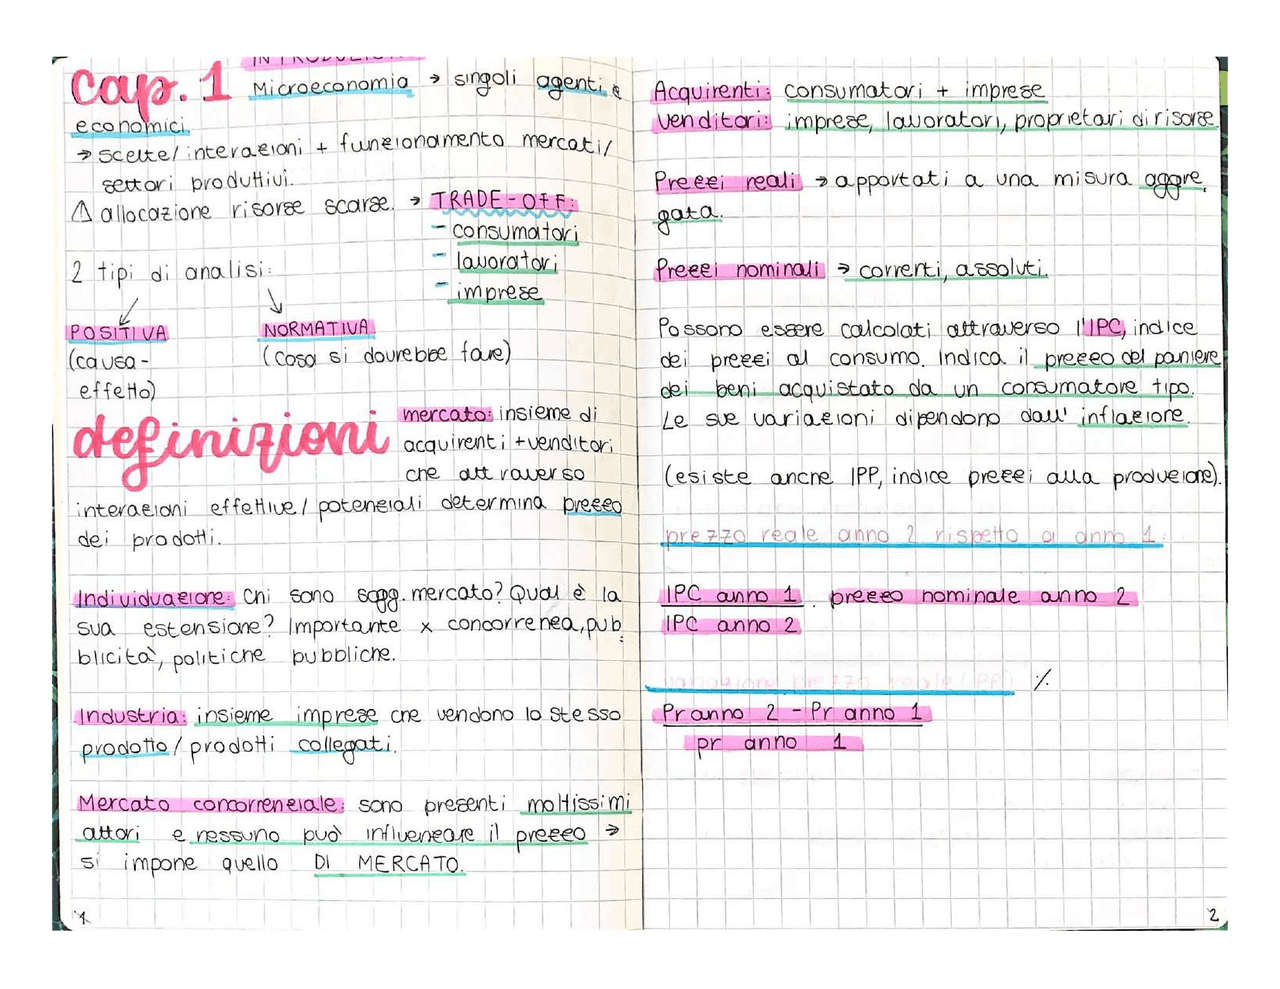 INTRODUZIONE
Cap. 1 Microeconomia → singoli agenti
economici
→ scelte/interazioni + funzionamento mercati/
settori produttivi.
⚠ allocazione risorse scarse. → TRADE-OFF:
- consumatori
- lavoratori
- imprese
2 tipi di analisi:
POSITIVA
(causa-
effetto)
NORMATIVA
(cosa si dovrebbe fare)
definizioni
mercato: insieme di
acquirenti + venditori
che attraverso
interazioni effettive/potenziali determina prezzo
dei prodotti.
Individuazione: Chi sono sogg. mercato? Qual è la
sua estensione? Importante x concorrenza, pub
blicità, politiche pubbliche.
Industria: insieme imprese che vendono lo stesso
prodotto/prodotti collegati.
Mercato concorrenziale: sono presenti moltissimi
attori e nessuno può influenzare il prezzo →
si impone quello DI MERCATO.
1
Acquirenti: consumatori + imprese
Venditori: imprese, lavoratori, proprietari di risorse.
Prezzi reali → apportati a una misura aggre
gata.
Prezzi nominali → correnti, assoluti.
Possono essere calcolati attraverso l'IPC, indice
dei prezzi al consumo. Indica il prezzo del paniere
dei beni acquistato da un consumatore tipo.
Le sue variazioni dipendono dall' inflazione.
(esiste anche IPP, indice prezzi alla produzione).
prezzo reale anno 2 rispetto a anno 1:
IPC anno 1 . prezzo nominale anno 2
IPC anno 2
variazione prezzo reale (PR) %
Pr anno 2 - Pr anno 1
pr anno 1
2